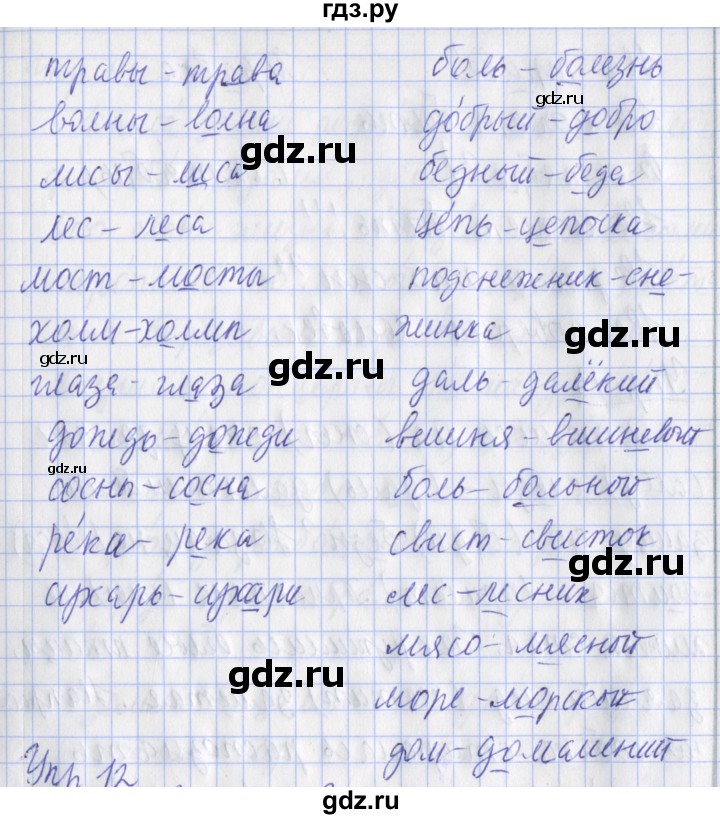 гдз.ру
травы - трава
волны - волна
лисы - лиса
лес - леса
мост - мосты
холм - холмп
глаза - глаза
дождь - дожди
сосны - сосна
ре́ка - река
сухарь - сухари
Упр. 12
боль - болезнь
до́брый - добро
бедный - беда
це́пь - цепочка
подснежник - сне-
жинка
даль - далёкий
вишня - вишневый
боль - больной
свист - свисток
лес - лесник
мясо - мясной
море - морской
дом - домашний
gdz.ru
gdz.ru
gdz.ru
gdz.ru
gdz.ru
gdz.ru
gdz.ru
gdz.ru
gdz.ru
gdz.ru
gdz.ru
gdz.ru
gdz.ru